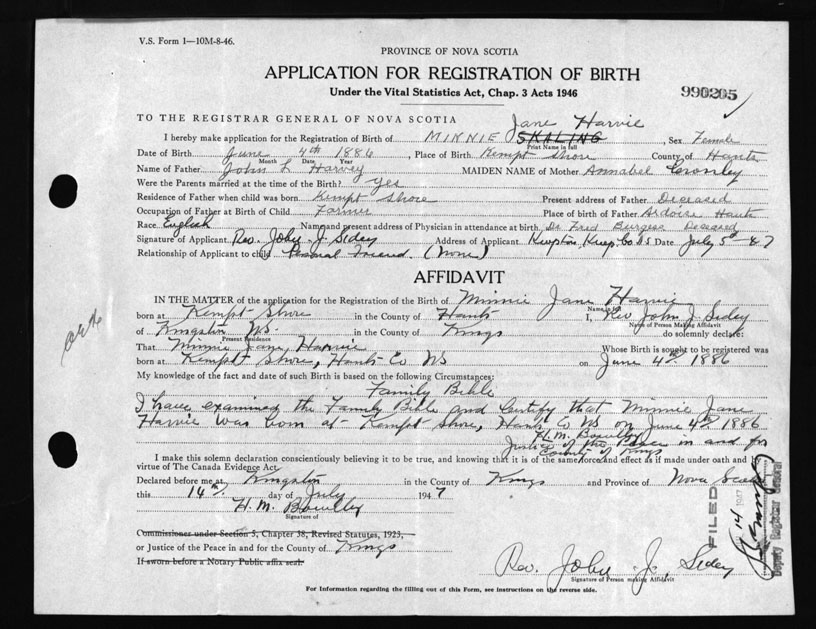 V.S. Form 1—10M-8-46.
PROVINCE OF NOVA SCOTIA
APPLICATION FOR REGISTRATION OF BIRTH
Under the Vital Statistics Act, Chap. 3 Acts 1946
990205
TO THE REGISTRAR GENERAL OF NOVA SCOTIA
Jane Harvie
I hereby make application for the Registration of Birth of MINNIE SKALING, Sex Female
Print Name in full
Date of Birth June 4th 1886, Place of Birth Kempt Shore County of Hants
Month Date Year
Name of Father John L Harvey MAIDEN NAME of Mother Annabel
Were the Parents married at the time of the Birth? yes
Residence of Father when child was born Kempt Shore Present address of Father Deceased
Occupation of Father at Birth of Child Farmer Place of birth of Father Ardoise Hants
Race English Name and present address of Physician in attendance at birth Dr Fred Burgess Deceased
Signature of Applicant Rev. John J. Sidey Address of Applicant Kingston, Kings Co NS Date July 5th 47
Relationship of Applicant to child Personal Friend. (None)
AFFIDAVIT
IN THE MATTER of the application for the Registration of the Birth of Minnie Jane Harvie
Name in full
born at Kempt Shore in the County of Hants I, Rev John J Sidey
Name of Person Making Affidavit
of Kingston NS. in the County of Kings do solemnly declare:
Present Residence
That Minnie Jane Harvie Whose Birth is sought to be registered was
born at Kempt Shore, Hants Co NS on June 4th 1886
My knowledge of the fact and date of such Birth is based on the following Circumstances:
Family Bible
I have examined the Family Bible and Certify that Minnie Jane
Harvie was born at Kempt Shore, Hants Co NS on June 4th 1886
H.M. Bowlby
Justice of the Peace in and for
County of Kings
I make this solemn declaration conscientiously believing it to be true, and knowing that it is of the same force and effect as if made under oath and
virtue of The Canada Evidence Act.
Declared before me at Kingston in the County of Kings and Province of Nova Scotia
this 14th day of July 1947
H. M. Bowlby
Signature of
Commissioner under Section 3, Chapter 38, Revised Statutes, 1923,
or Justice of the Peace in and for the County of Kings
If sworn before a Notary Public affix seal
Rev. John J. Sidey
Signature of Person making Affidavit
For Information regarding the filling out of this Form, see instructions on the reverse side.
FILED
14 1947
Deputy Registrar General